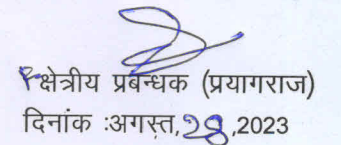 क्षेत्रीय प्रबन्धक (प्रयागराज)
दिनांक :अगस्त,28,2023